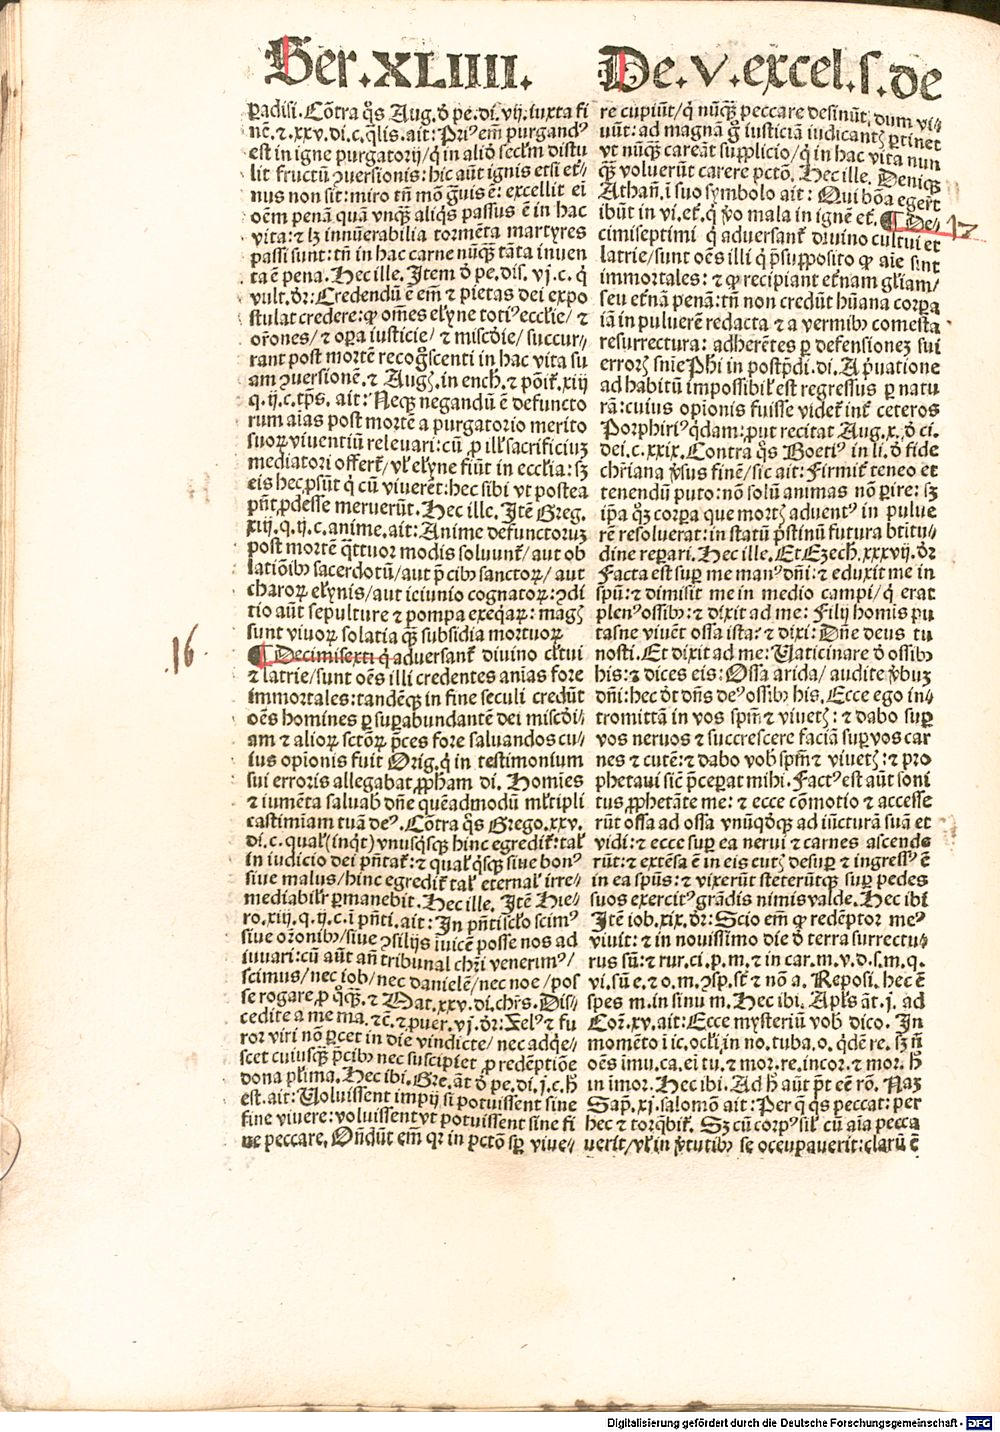 Ser.XLIIII.
De.V.excel.s.de
ꝑadisi.Cōtra q̊s Aug.ð pe.di.vij.iuxta fi
nē.⁊.xxv.di.c.q̄lis.ait:Priꝰ em̄ purgandꝰ
est in igne purgatorij/q̇ in aliō secl̄m distu
lit fructū ꝯuersionis:hic aūt ignis etsi et̄-
nus non sit:miro tn̄ mō g̊uis ē: excellit ei
oēm penā quā vnqꝫ aliq̇s passus ē in hac
vita:⁊ lꝫ innūerabilia tormēta martyres
passi sunt:tn̄ in hac carne nūq̄ꝫ tāta inuen
ta ē pena.Hec ille.Item ð pe.dis.vj.c.q̇
vult.ðr:Credendū ē em̄ ⁊ pietas dei expo
stulat credere:ꝙ om̄es eĺyne totiꝰ eccl̄ie/ ⁊
or̄ones/ ⁊ oꝑa iusticie/ ⁊ misc̄ðie/ succur-
rant post mortē recog̊scenti in hac vita su
am ꝯuersionē.⁊ Augꝫ.in ench.⁊ pōit̄.xiij
q.ij.c.tp̄s. ait: Neqꝫ negandū ē defuncto
rum aīas post mortē a purgatorio merito
suoꝝ viuentiū releuari:cū ꝓ ill̄ sacrificiuꝫ
mediatori offert̄/ vl̄ eĺyne fiūt in eccl̄ia:sꝫ
eis hec ꝓsūt q̇ cū viuerēt:hec sibi vt postea
pn̄t ꝓdesse meruerūt.Hec ille. Itē Greg.
xiij.q.ij.c.anime.ait:Anime defunctoruꝫ
post mortē q̄ttuor modis soluunt̄/ aut ob
latiōibꝰ sacerdotū/aut p̄cibꝰ sanctoꝝ/ aut
charoꝝ eĺynis/aut ieiunio cognatoꝝ:ꝯdi
tio aūt sepulture ⁊ pompa exeq̇aꝝ: magꝫ
sunt viuoꝝ solatia q̄ꝫ subsidia mortuoꝝ
16
¶ Decimisexti q̇ aduersant̄ diuino cl̄tui
⁊ latrie/sunt oēs illi credentes anīas fore
immortales:tandēqꝫ in fine seculi credūt
oēs homines ꝑ suꝑabundantē dei misc̄ði-
am ⁊ alioꝝ sctōꝝ p̄ces fore saluandos cu-
ius opīonis fuit Orig.q̇ in testimonium
sui erroris allegabat ꝓph̄am di. Homīes
⁊ iumēta saluab̄ dn̄e quēadmodū ml̄tipli
castimīam tuā deꝰ.Cōtra q̊s Grego.xxv.
di.c.qual̄(inq̇t)vnusq̇sqꝫ hinc egredit̄:tal̄
in iudicio dei pn̄tat̄:⁊ qual̄ q̇sqꝫ siue bonꝰ
siue malus/hinc egredit̄ tal̄ eternal̄ irre-
mediabilr̄ ꝑmanebit.Hec ille.Itē Hie-
ro.xiij.q.ij.c.ī pn̄ti.ait:In pn̄ti scl̄o scimꝰ
siue or̄onibꝰ/siue ꝯsilijs īuicē posse nos ad
iuuari:cū aūt an̄ tribunal chr̄i venerimꝰ/
scimus/nec iob/nec danielē/nec noe /pos
se rogare ꝓ q̊ꝫqꝫ.⁊ Mat.xxv.di.chr̄s.Dis-
cedite a me ma.⁊c̄.⁊ ꝓuer.vj.ðr:Zelꝰ ⁊ fu
ror viri nō ꝑcet in die vindicte/ nec adq̇e-
scet cuiusqꝫ p̄cibꝰ nec suscipiet ꝓ redēptiōe
dona pl̄ima.Hec ibi.Gre.āt ð pe.di.j.c.h̄
est.ait:Voluissent impij si potuissent sine
fine viuere:voluissent vt potuissent sine fi
ne peccare. Ōndūt em̄ qꝛ in pctō sꝑ viue-
re cupiūt/q̇ nūq̄ꝫ peccare desinūt/dum vi-
uūt:ad magnā g̊ iusticiā iudicantꝫ ꝑtinet
vt nūq̄ꝫ careāt supplicio/q̇ in hac vita nun
q̄ꝫ voluerūt carere pctō.Hec ille. Deniqꝫ
Athan̄.ī suo symbolo ait: Qui bōa egert̄
ibūt in vi.et̄.q̇ ꝟo mala in ignē et̄. ¶ De-
17
cimiseptimi q̇ aduersant̄ diuino cultui et
latrie/sunt oēs illi q̇ p̄supposito ꝙ aīe sint
immortales: ⁊ ꝙ recipiant et̄nam gl̄iam/
seu et̄nā penā:tn̄ non credūt hūana corꝑa
iā in puluerē redacta ⁊ a vermibꝰ comesta
resurrectura: adherētes ꝑ defensioneꝫ sui
errorꝫ sn̄ie Ph̄i in postp̄di.di.A ṗuatione
ad habitū impossibil̄ est regressus ꝑ natu
rā:cuius opīonis fuisse videt̄ int̄ ceteros
Porphiriꝰ q̇dam:ꝓut recitat Aug.x.ð ci.
dei.c.xxix.Contra q̊s Boetiꝰ in li.ð fide
chr̄iana ꝟsus finē/sic ait:Firmit̄ teneo et
tenendū puto:nō solū animas nō ꝑire: sꝫ
ip̄a q̊ꝫ corꝑa que mortꝫ aduentꝰ in pulue
rē resoluerat:in statū ṗstinū futura btītu-
dine reꝑari.Hec ille.Et Ezech.xxxvij.ðr
Facta est suꝑ me manꝰ dn̄i:⁊ eduxit me in
spū:⁊ dimisit me in medio campi/ q̇ erat
plenꝰ ossibꝰ:⁊ dixit ad me: Filij homīs pu
tasne viuēt ossa ista:⁊ dixi:Dn̄e deus tu
nosti.Et dixit ad me:Vaticinare ð ossibꝰ
his:⁊ dices eis:Ossa arida/ audite ꝟbuꝫ
dn̄i:hec ðt dn̄s deꝰ ossibꝰ his.Ecce ego in-
tromittā in vos spm̄ ⁊ viuetꝫ: ⁊ dabo suꝑ
vos neruos ⁊ succrescere faciā suꝑ vos car
nes ⁊ cutē:⁊ dabo vob̄ spm̄ ⁊ viuetꝫ:⁊ pro
phetaui sic̄ p̄ceꝑat mihi.Factꝰ est aūt soni
tus ꝓphetāte me:⁊ ecce cōmotio ⁊ accesse
rūt ossa ad ossa vnūqðqꝫ ad iūcturā suā et
vidi:⁊ ecce suꝑ ea nerui ⁊ carnes ascende
rūt:⁊ extēsa ē in eis cutꝫ desuꝑ ⁊ ingressꝰ ē
in ea spūs:⁊ vixerūt steterūtqꝫ suꝑ pedes
suos exercitꝰ grādis nimis valde.Hec ibi
Itē iob.xix.ðr:Scio em̄ ꝙ redēptor meꝰ
viuit:⁊ in nouissimo die ð terra surrectu-
rus sū:⁊ rur.ci.p.m.⁊ in car.m.v.d.s.m.q.
vi.sū e.⁊ o.m.ꝯsp.st̄ ⁊ nō a. Reposi.hec ē
spes m.in sinu m.Hec ibi.Apl̄s āt.j. ad
Cor̄.xv.ait:Ecce mysteriū vob̄ dico. In
momēto ī ic.ocl̄i.in no.tuba.o.q̇dē re.sꝫ n̄
oēs īmu.ca.ei tu.⁊ mor.re.incor.⁊ mor.h̄
in īmor.Hec ibi.Ad h̄ aūt p̄t eē rō. Naꝫ
Sap̄.xj.salomō ait:Per q̄ q̇s peccat: per
hec ⁊ torq̄bit̄. Sꝫ cū corpꝰ sil̄ cū aīa pecca
uerit/vl̄ in ꝟtutibꝰ se occupauerit:clarū ē
Digitalisierung gefördert durch die Deutsche Forschungsgemeinschaft - DFG